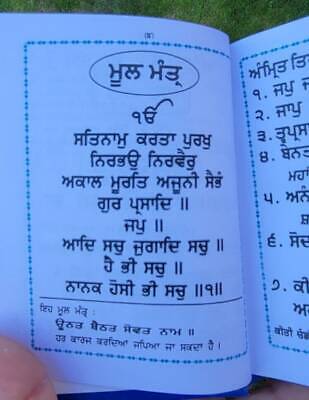 (੪)
ਮੂਲ ਮੰਤ੍ਰ
ੴ
ਸਤਿਨਾਮੁ ਕਰਤਾ ਪੁਰਖੁ
ਨਿਰਭਉ ਨਿਰਵੈਰੁ
ਅਕਾਲ ਮੂਰਤਿ ਅਜੂਨੀ ਸੈਭੰ
ਗੁਰ ਪ੍ਰਸਾਦਿ ॥
ਜਪੁ ॥
ਆਦਿ ਸਚੁ ਜੁਗਾਦਿ ਸਚੁ ॥
ਹੈ ਭੀ ਸਚੁ ॥
ਨਾਨਕ ਹੋਸੀ ਭੀ ਸਚੁ ॥੧॥
ਇਹ ਮੂਲ ਮੰਤ੍ਰ :
ਊਠਤ ਬੈਠਤ ਸੋਵਤ ਨਾਮ ॥
ਹਰ ਕਾਰਜ ਕਰਦਿਆਂ ਜਪਿਆ ਜਾ ਸਕਦਾ ਹੈ ।
ਅੰਮ੍ਰਿਤ
੧. ਜਪੁ
੨. ਜਾਪੁ
੩.
੪.
੫.
੬.
੭.